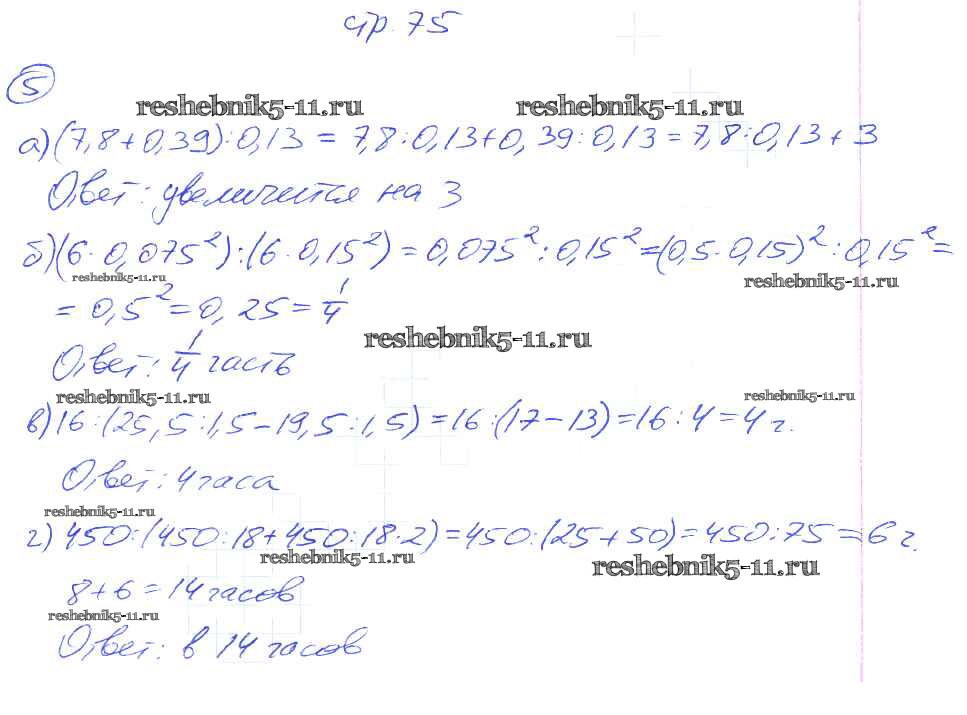 стр. 75
5
reshebnik5-11.ru reshebnik5-11.ru
а) (7,8+0,39):0,13 = 7,8:0,13+0,39:0,13 = 7,8:0,13+3
Ответ: увеличится на 3
б) (6·0,075²):(6·0,15²) = 0,075²:0,15² = (0,5·0,15)²:0,15² =
reshebnik5-11.ru reshebnik5-11.ru
= 0,5² = 0,25 = 1/4
reshebnik5-11.ru
Ответ: 1/4 часть
reshebnik5-11.ru reshebnik5-11.ru
в) 16:(25,5:1,5-19,5:1,5) = 16:(17-13) = 16:4 = 4 ч.
Ответ: 4 часа
reshebnik5-11.ru
г) 450:(450:18+450:18·2) = 450:(25+50) = 450:75 = 6 ч.
reshebnik5-11.ru reshebnik5-11.ru
8+6 = 14 часов
reshebnik5-11.ru
Ответ: в 14 часов